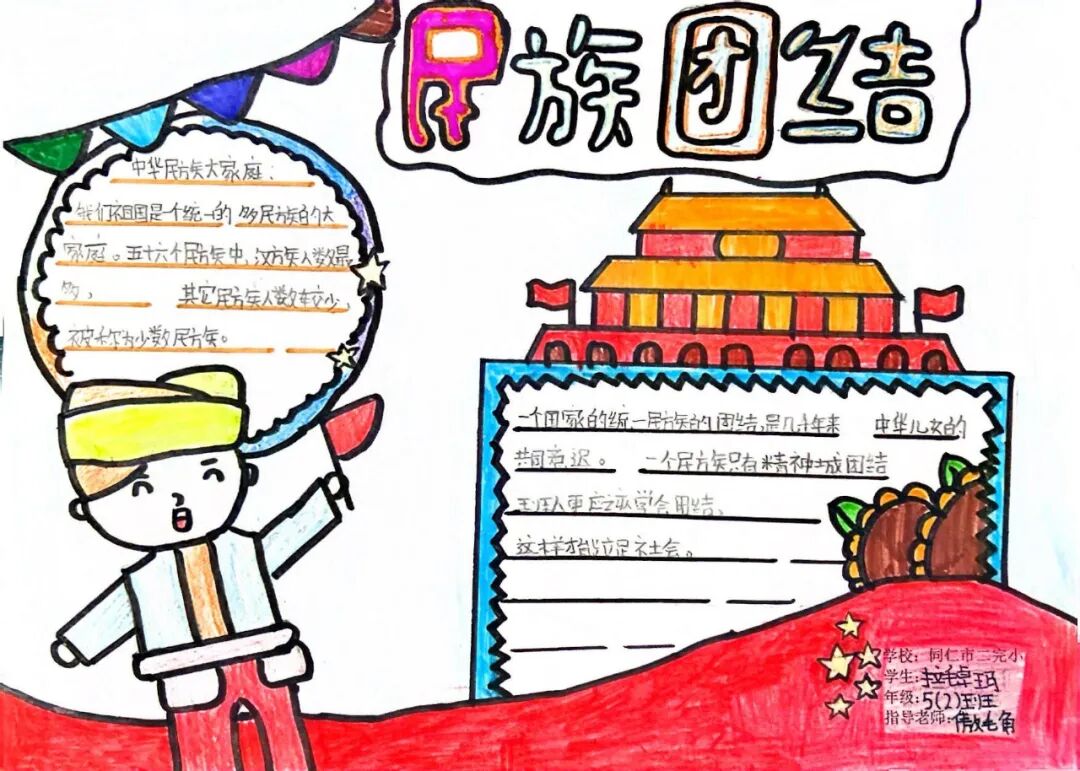 民族团结
中华民族大家庭：
我们祖国是个统一的 多民族的大
家庭。五十六个民族中，汉族人数最
多， 其它民族人数较少，
被称为少数民族。
一个国家的统一民族的团结,是几十年来 中华儿女的
共同
一个民族只有精神 团结
团结，
这样才能立足社会。
学校：同仁市二完小
学生：拉毛卓玛
年级：5(2)班
指导老师：毛角